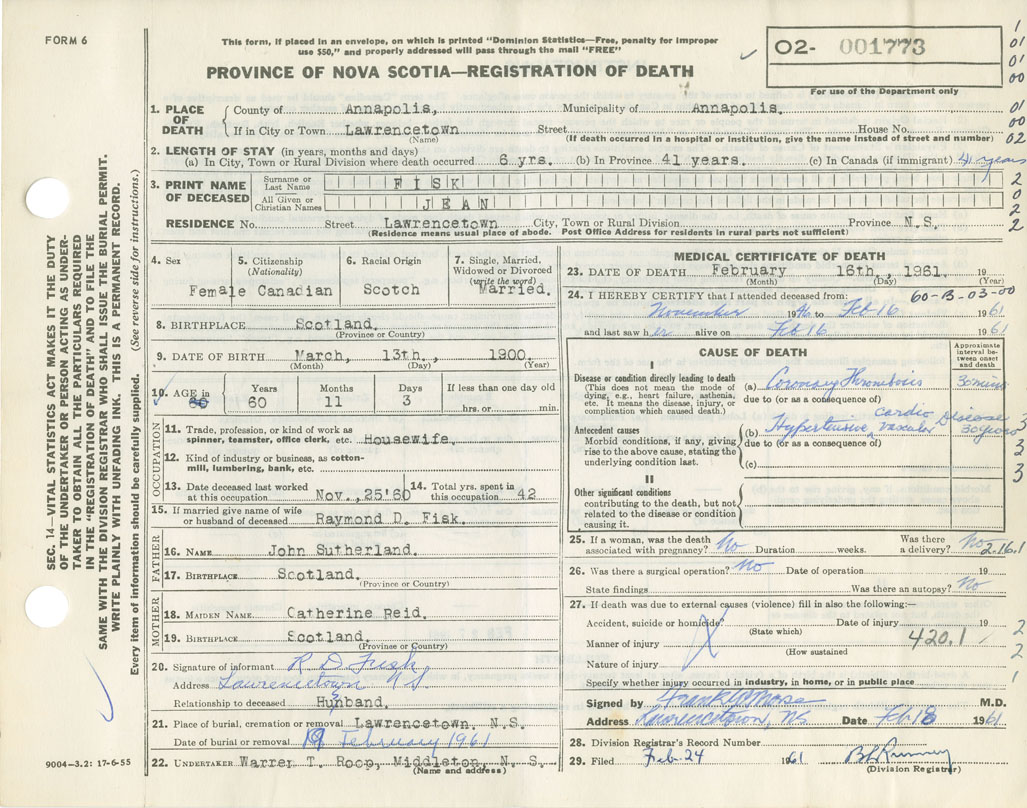 FORM 6
This form, if placed in an envelope, on which is printed "Dominion Statistics—Free, penalty for improper
use $50," and properly addressed will pass through the mail "FREE"
PROVINCE OF NOVA SCOTIA—REGISTRATION OF DEATH
02- 001773
For use of the Department only
SEC. 14—VITAL STATISTICS ACT MAKES IT THE DUTY
OF THE UNDERTAKER OR PERSON ACTING AS UNDER-
TAKER TO OBTAIN ALL THE PARTICULARS REQUIRED
IN THE "REGISTRATION OF DEATH" AND TO FILE THE
SAME WITH THE DIVISION REGISTRAR WHO SHALL ISSUE THE BURIAL PERMIT.
WRITE PLAINLY WITH UNFADING INK. THIS IS A PERMANENT RECORD.
Every item of information should be carefully supplied. (See reverse side for instructions.)
1. PLACE OF DEATH
County of Annapolis, Municipality of Annapolis.
If in City or Town Lawrencetown Street House No.
(Name) (If death occurred in a hospital or institution, give the name instead of street and number)
2. LENGTH OF STAY (in years, months and days)
(a) In City, Town or Rural Division where death occurred 6 yrs. (b) In Province 41 years. (c) In Canada (if immigrant) 41 years
3. PRINT NAME OF DECEASED
Surname or Last Name FISK
All Given or Christian Names JEAN
RESIDENCE No. Street Lawrencetown City, Town or Rural Division Province N.S.
(Residence means usual place of abode. Post Office Address for residents in rural parts not sufficient)
4. Sex Female
5. Citizenship (Nationality) Canadian
6. Racial Origin Scotch
7. Single, Married, Widowed or Divorced (write the word) Married.
8. BIRTHPLACE Scotland.
(Province or Country)
9. DATE OF BIRTH March, 13th., 1900.
(Month) (Day) (Year)
10. AGE in Years Months Days If less than one day old
60 60 11 3 hrs. or min.
OCCUPATION
11. Trade, profession, or kind of work as
spinner, teamster, office clerk, etc. Housewife.
12. Kind of industry or business, as cotton-
mill, lumbering, bank, etc.
13. Date deceased last worked at this occupation Nov.,25'60
14. Total yrs. spent in this occupation 42
15. If married give name of wife
or husband of deceased Raymond D. Fisk.
FATHER
16. NAME John Sutherland.
17. BIRTHPLACE Scotland.
(Province or Country)
MOTHER
18. MAIDEN NAME Catherine Reid.
19. BIRTHPLACE Scotland.
(Province or Country)
20. Signature of informant R D Fisk
Address Lawrencetown NS
Relationship to deceased Husband.
21. Place of burial, cremation or removal Lawrencetown, N.S.
Date of burial or removal 19 February 1961
22. UNDERTAKER Warren T. Roop, Middleton, N. S.
(Name and address)
9004—3.2: 17-6-55
MEDICAL CERTIFICATE OF DEATH
23. DATE OF DEATH February 16th., 1961. 19
(Month) (Day) (Year)
24. I HEREBY CERTIFY that I attended deceased from: 60-13-03-00
November 1946 to Feb 16 1961
and last saw her alive on Feb 16 1961
CAUSE OF DEATH
Approximate interval between onset and death
I
Disease or condition directly leading to death
(This does not mean the mode of
dying, e.g., heart failure, asthenia,
etc. It means the disease, injury, or
complication which caused death.)
(a) Coronary Thrombosis 30 mins
due to (or as a consequence of)
Antecedent causes
Morbid conditions, if any, giving
rise to the above cause, stating the
underlying condition last.
(b) Hypertensive cardio vascular Disease 30 years
due to (or as a consequence of)
(c)
II
Other significant conditions
contributing to the death, but not
related to the disease or condition
causing it.
25. If a woman, was the death
associated with pregnancy? No Duration weeks. Was there a delivery? No
2.16.1
26. Was there a surgical operation? No Date of operation 19
State findings Was there an autopsy? No
27. If death was due to external causes (violence) fill in also the following:—
Accident, suicide or homicide? Date of injury 19
(State which)
Manner of injury 420.1
(How sustained
Nature of injury
Specify whether injury occurred in industry, in home, or in public place
Signed by M.D.
Address Lawrencetown, NS Date Feb 18 1961.
28. Division Registrar's Record Number
29. Filed Feb. 24 1961
(Division Registrar)
1
01
01
00
01
00
02
2
0
2
2
3
2
3
2
2
1